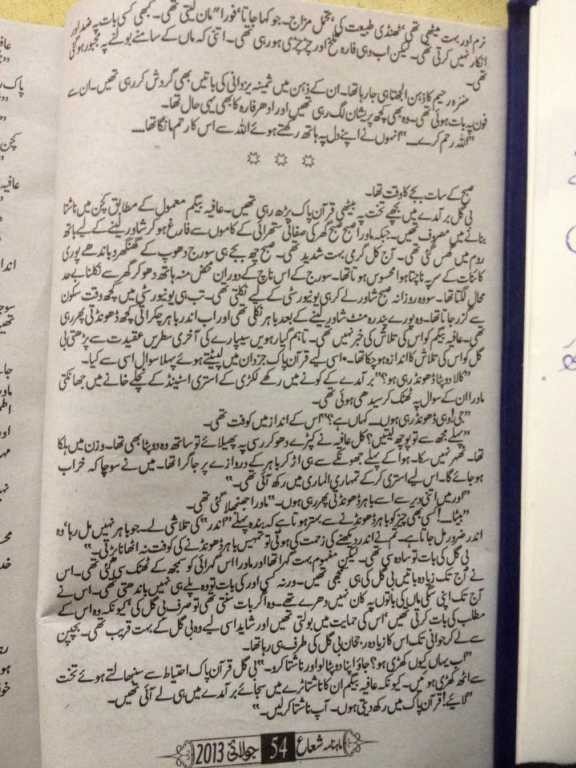 نرم اور بہت میٹھی تھی' ٹھنڈی طبیعت کی' تحمل مزاج۔ جو کہا جاتا' فورا" مان لیتی تھی۔ کبھی کسی بات پہ ضد اور
انکار نہیں کرتی تھی۔ لیکن اب وہی فارہ تلخ اور چڑچڑی ہو رہی تھی۔ اتنی کہ ماں کے سامنے بولنے پہ مجبور ہو گئی
تھی۔
منزہ رحیم کا ذہن الجھتا ہی جا رہا تھا۔ ان کے ذہن میں ثمینہ یزدانی کی باتیں بھی گردش کر رہی تھیں۔ ان سے
فون پہ بات ہوئی تھی۔ وہ بھی کچھ پریشان لگ رہی تھیں اور ادھر فارہ کا بھی یہی حال تھا۔
"اللہ رحم کرے۔۔۔" انہوں نے اپنے دل پہ ہاتھ رکھتے ہوئے اللہ سے اس کا رحم مانگا تھا۔۔۔۔
☼ ☼ ☼
صبح کے سات بجے کا وقت تھا۔
بی گل برآمدے میں بچھے تخت پہ بیٹھی قرآن پاک پڑھ رہی تھیں۔ عافیہ بیگم معمول کے مطابق کچن میں ناشتا
بنانے میں مصروف تھیں۔ جبکہ ماورا صبح صبح گھر کی صفائی ستھرائی کے کاموں سے فارغ ہو کر شاور لینے کے لیے باتھ
روم میں گھس گئی تھی۔ آج کل گرمی بہت شدید تھی۔ صبح چھ بجے ہی سورج دھوپ کے گھنگھرو باندھے پوری
کائنات کے سر پہ ناچتا ہوا محسوس ہوتا تھا۔ سورج کے اس ناچ کے دوران محض منہ ہاتھ دھو کر گھر سے نکلنا بے حد
محال لگتا تھا۔ سو وہ روزانہ صبح شاور لے کر ہی یونیورسٹی کے لیے نکلتی تھی۔ تب ہی یونیورسٹی میں کچھ وقت سکون
سے گزر جاتا تھا۔ وہ پورے پندرہ منٹ شاور لینے کے بعد باہر نکلی تھی اور اب اندر باہر چکراتی کچھ ڈھونڈتی پھر رہی
تھی۔ عافیہ بیگم کو اس کی تلاش کی خبر نہیں تھی۔ تاہم گیارہویں سیپارے کی آخری سطریں عقیدت سے پڑھتی بی
گل کو اس کی تلاش کا اندازہ ہو چکا تھا۔ اسی لیے قرآن پاک جزدان میں لپیٹتے ہوئے پہلا سوال اسی سے کیا۔
"کالا دوپٹا ڈھونڈ رہی ہو؟" برآمدے کے کونے میں رکھے لکڑی کے استری اسٹینڈ کے نچلے خانے میں جھانکتی
ماورا ان کے سوال پہ ٹھٹک کر سیدھی ہوئی تھی۔
"جی! وہی ڈھونڈ رہی ہوں۔۔۔ کہاں ہے؟" اس کے انداز میں کوفت تھی۔
"پہلے مجھ سے تو پوچھ لیتیں؟ کل عافیہ نے کپڑے دھو کر رسی پہ پھیلائے تو ساتھ وہ دوپٹا بھی تھا۔ وزن میں ہلکا
تھا۔ ٹھہر نہیں سکا۔ ہوا کے پہلے جھونکے سے ہی اڑ کر باہر کے دروازے پر جا گرا تھا۔ میں نے سوچا کہ خراب
ہو جائے گا۔ اس لیے استری کر کے تمہاری الماری میں رکھ آئی تھی۔"
"اور میں اتنی دیر سے اسے باہر ڈھونڈتی پھر رہی ہوں۔" ماورا جھنجھلا گئی تھی۔
"بیٹا۔۔۔! کسی بھی چیز کو باہر ڈھونڈنے سے بہتر ہوتا ہے کہ بندہ پہلے "اندر" کی تلاشی لے۔ جو باہر نہیں مل رہا' وہ
اندر ضرور مل جاتا ہے۔ تم نے اندر دیکھنے کی زحمت کی ہوتی تو تمہیں باہر ڈھونڈنے کی کوفت نہ اٹھانا پڑتی۔"
بی گل کی بات تو سادہ سی تھی۔ لیکن مفہوم بہت گہرا تھا اور ماورا اس گہرائی کو سمجھ کے ٹھٹک سی گئی تھی۔ اس
نے آج تک زیادہ باتیں بی گل کی ہی سمجھی تھیں۔ ورنہ کسی اور کی بات تو وہ پلے ہی نہیں باندھتی تھی۔ اس نے
آج تک اپنی سگی ماں کی باتوں پہ کان نہیں دھرے تھے۔ وہ اگر بات سنتی تھی تو صرف بی گل کی' کیونکہ وہ اس کے
مطلب کی بات کرتی تھیں' اس کی حمایت میں بولتی تھیں اور شاید اسی لیے وہ بی گل کے بہت قریب تھی۔ بچپن
سے لے کر جوانی تک اس کا زیادہ رجحان بی گل کی طرف ہی رہا تھا۔
"اب یہاں کیوں کھڑی ہو؟ جاؤ اپنا دوپٹا لو اور ناشتا کرو۔" بی گل قرآن پاک احتیاط سے سنبھالتے ہوئے تخت
سے اٹھ کھڑی ہوئیں۔ کیونکہ عافیہ بیگم ان کا ناشتا ٹرے میں سجائے برآمدے میں ہی لے آئی تھیں۔
"لائیے! قرآن پاک میں رکھ دیتی ہوں۔ آپ ناشتا کرلیں۔"
ماہنامہ شعاع 54 جولائی 2013